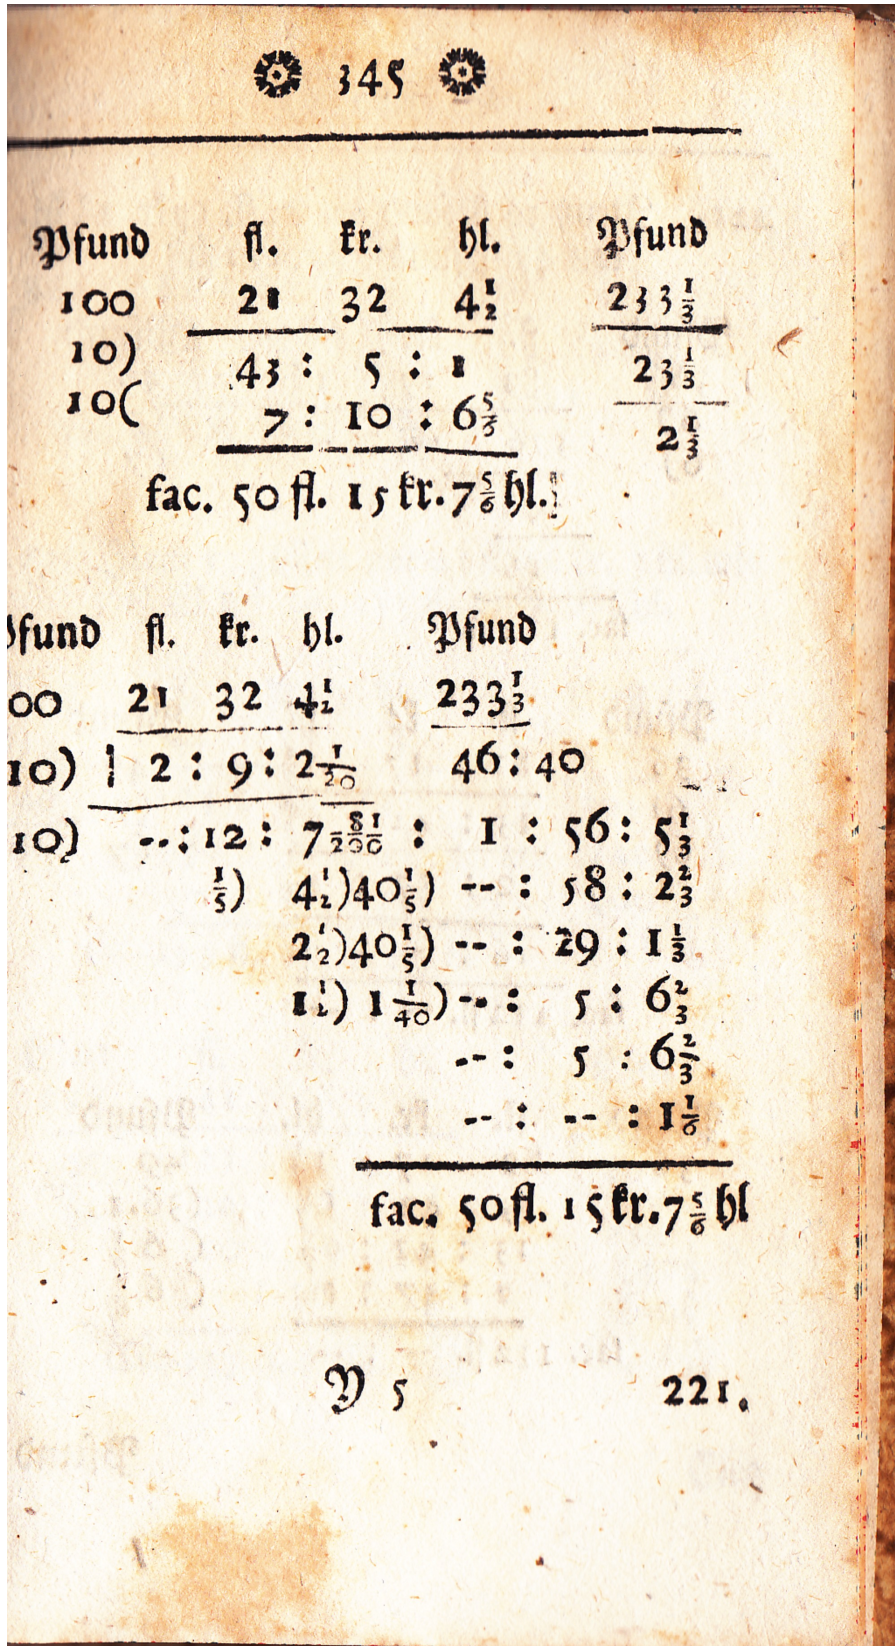 345
Pfund fl. kr. hl. Pfund
100 21 32 4½ 233⅓
10) 43 : 5 : 1 23⅓
10( 7 : 10 : 6⅚ 2⅓
fac. 50 fl. 15 kr. 7⅚ hl.
fund fl. kr. hl. Pfund
00 21 32 4½ 233⅓
10) 2 : 9 : 2 1/20 46 : 40
10) -- : 12 : 7 81/200 : 1 : 56 : 5⅓
⅕) 4½)40⅕) -- : 58 : 2⅔
2½)40⅕) -- : 29 : 1⅓
1½) 1 1/40) -- : 5 : 6⅔
-- : 5 : 6⅔
-- : -- : 1⅙
fac. 50 fl. 15 kr. 7⅚ hl
Y 5 221.